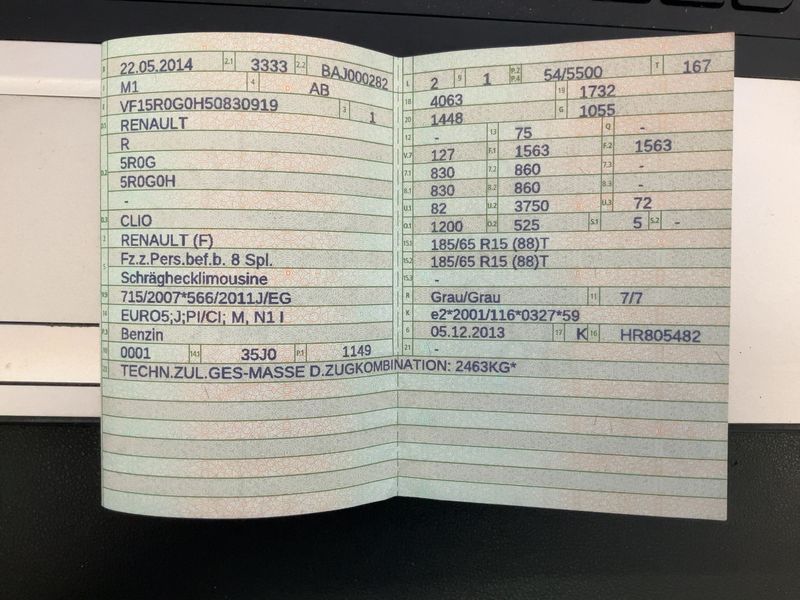 B 22.05.2014 2.1 3333 2.2 BAJ000282
J M1 4 AB
E VF15R0G0H50830919 3 1
D.1 RENAULT
R
D.2 5R0G
5R0G0H
-
D.3 CLIO
2 RENAULT (F)
5 Fz.z.Pers.bef.b. 8 Spl.
Schräghecklimousine
V.9 715/2007*566/2011J/EG
14 EURO5;J;PI/CI; M, N1 I
P.3 Benzin
10 0001 14.1 35J0 P.1 1149
22 TECHN.ZUL.GES-MASSE D.ZUGKOMBINATION: 2463KG*
L 2 9 1 P.2 P.4 54/5500 T 167
18 4063 19 1732
20 1448 G 1055
12 - 13 75 Q -
V.7 127 F.1 1563 F.2 1563
7.1 830 7.2 860 7.3 -
8.1 830 8.2 860 8.3 -
U.1 82 U.2 3750 U.3 72
O.1 1200 O.2 525 S.1 5 S.2 -
15.1 185/65 R15 (88)T
15.2 185/65 R15 (88)T
15.3 -
R Grau/Grau 11 7/7
K e2*2001/116*0327*59
6 05.12.2013 17 K 16 HR805482
21 -